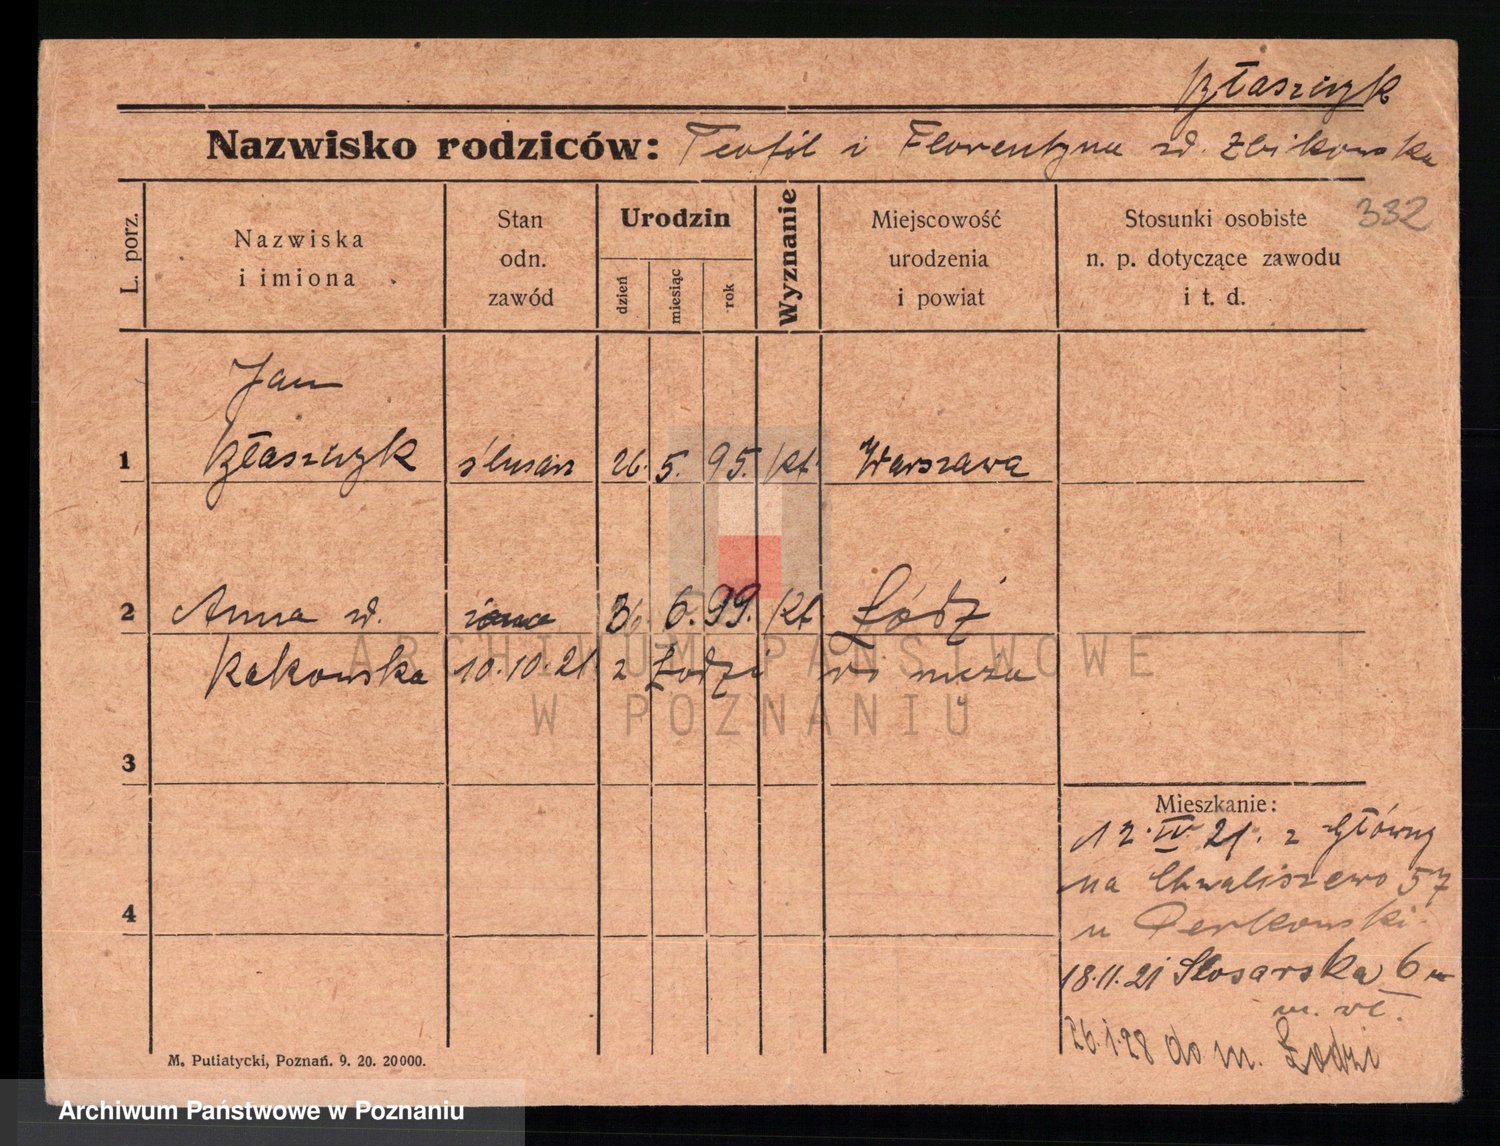 Błaszczyk
Nazwisko rodziców: Teofil i Florentyna zd. Zbikowska
332
L. porz.
Nazwiska
i imiona
Stan
odn.
zawód
Urodzin
dzień
miesiąc
rok
Wyznanie
Miejscowość
urodzenia
i powiat
Stosunki osobiste
n. p. dotyczące zawodu
i t. d.
Jan
1 Błaszczyk ślusarz 26. 5. 95. Kt. Warszawa
2 Anna zd. żona 6. 99. Kt. Łódź
Kakowska 10.10.21 z Łodzi do męża
3
Mieszkanie:
12. IV. 21. z Główny
na Chwaliszewo 57
u Perkowski
4
18.11.21 Ślosarska 6
26.1.28 do m. Łodzi
M. Putiatycki, Poznań. 9. 20. 20000.
ARCHIWUM PAŃSTWOWE
W POZNANIU
Archiwum Państwowe w Poznaniu